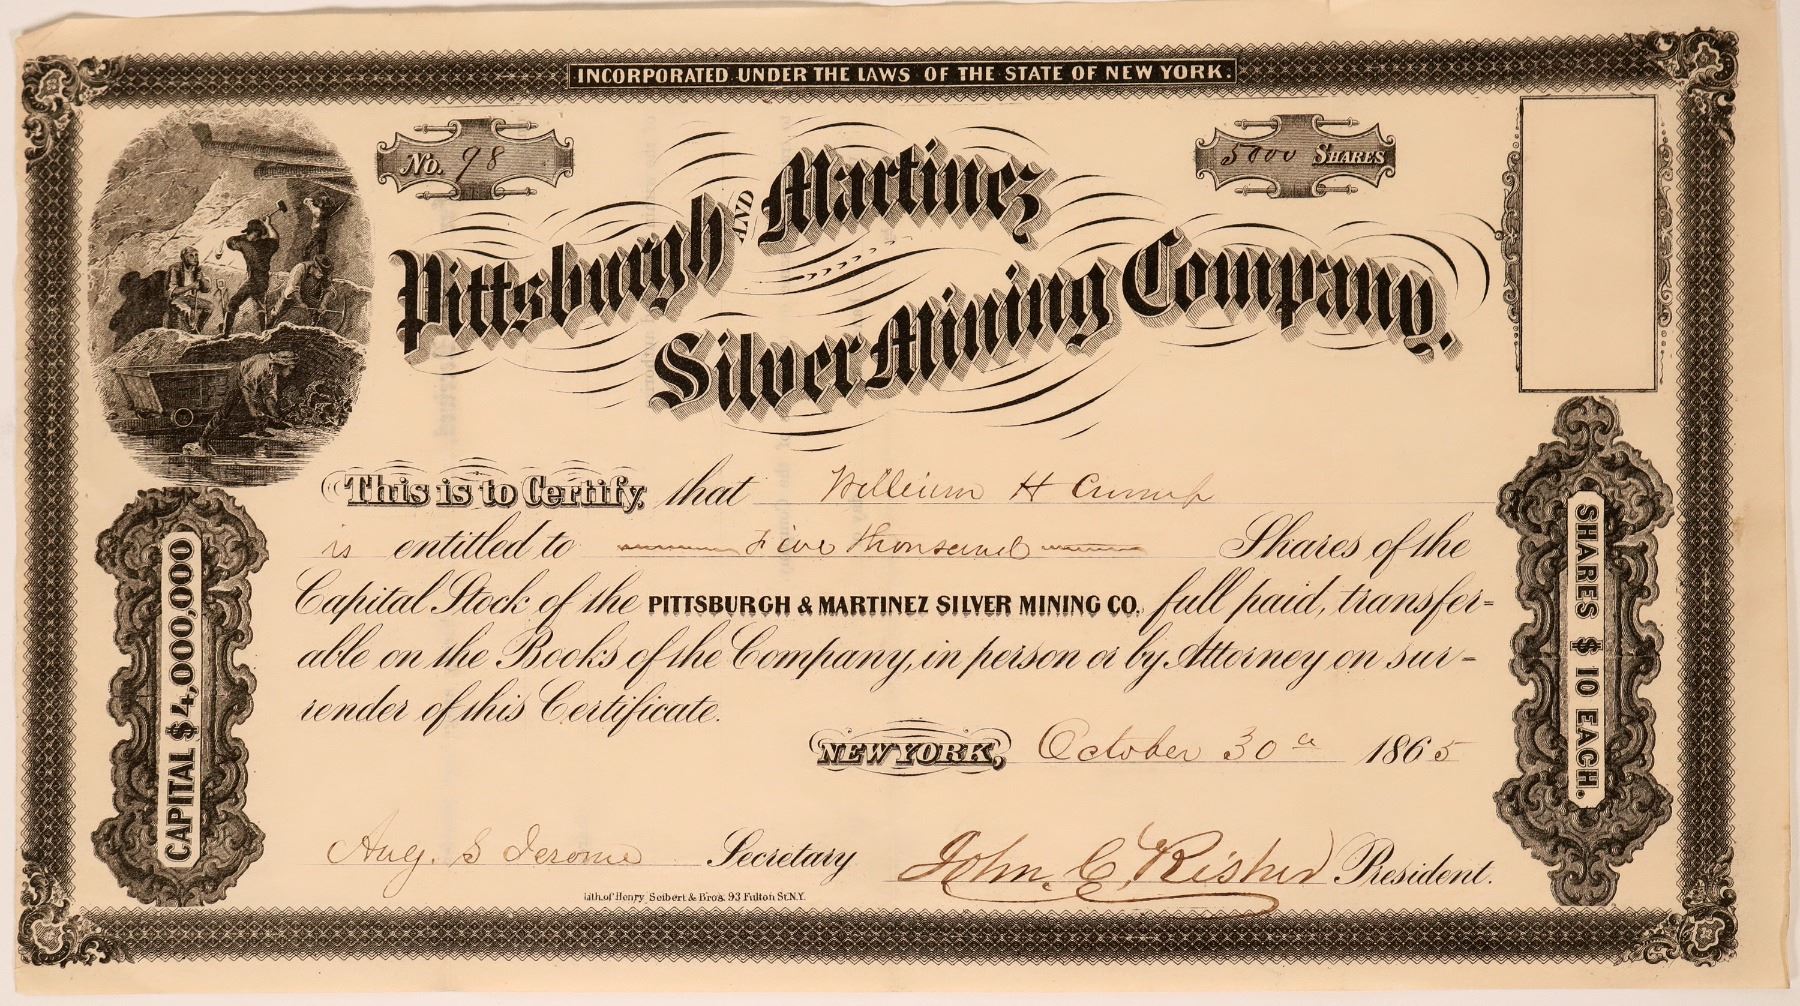 INCORPORATED UNDER THE LAWS OF THE STATE OF NEW YORK.
No. 98
5000 SHARES
Pittsburgh AND Martinez
Silver Mining Company.
This is to Certify, that William H Crump
is entitled to Five Thousand Shares of the
Capital Stock of the PITTSBURGH & MARTINEZ SILVER MINING CO. full paid, transfer=
able on the Books of the Company, in person or by Attorney on sur-
render of this Certificate.
NEW YORK, October 30th 1865
Aug. S Jerome Secretary John C. Risher President.
Lith. of Henry Seibert & Bros. 93 Fulton St. N.Y.
CAPITAL $4,000,000
SHARES $10 EACH.